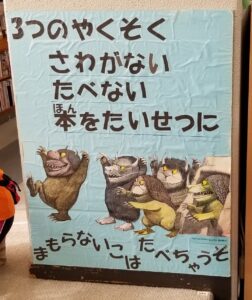 3つのやくそく
さわがない
たべない
本をたいせつに
ほん
まもらないこは たべちゃうぞ